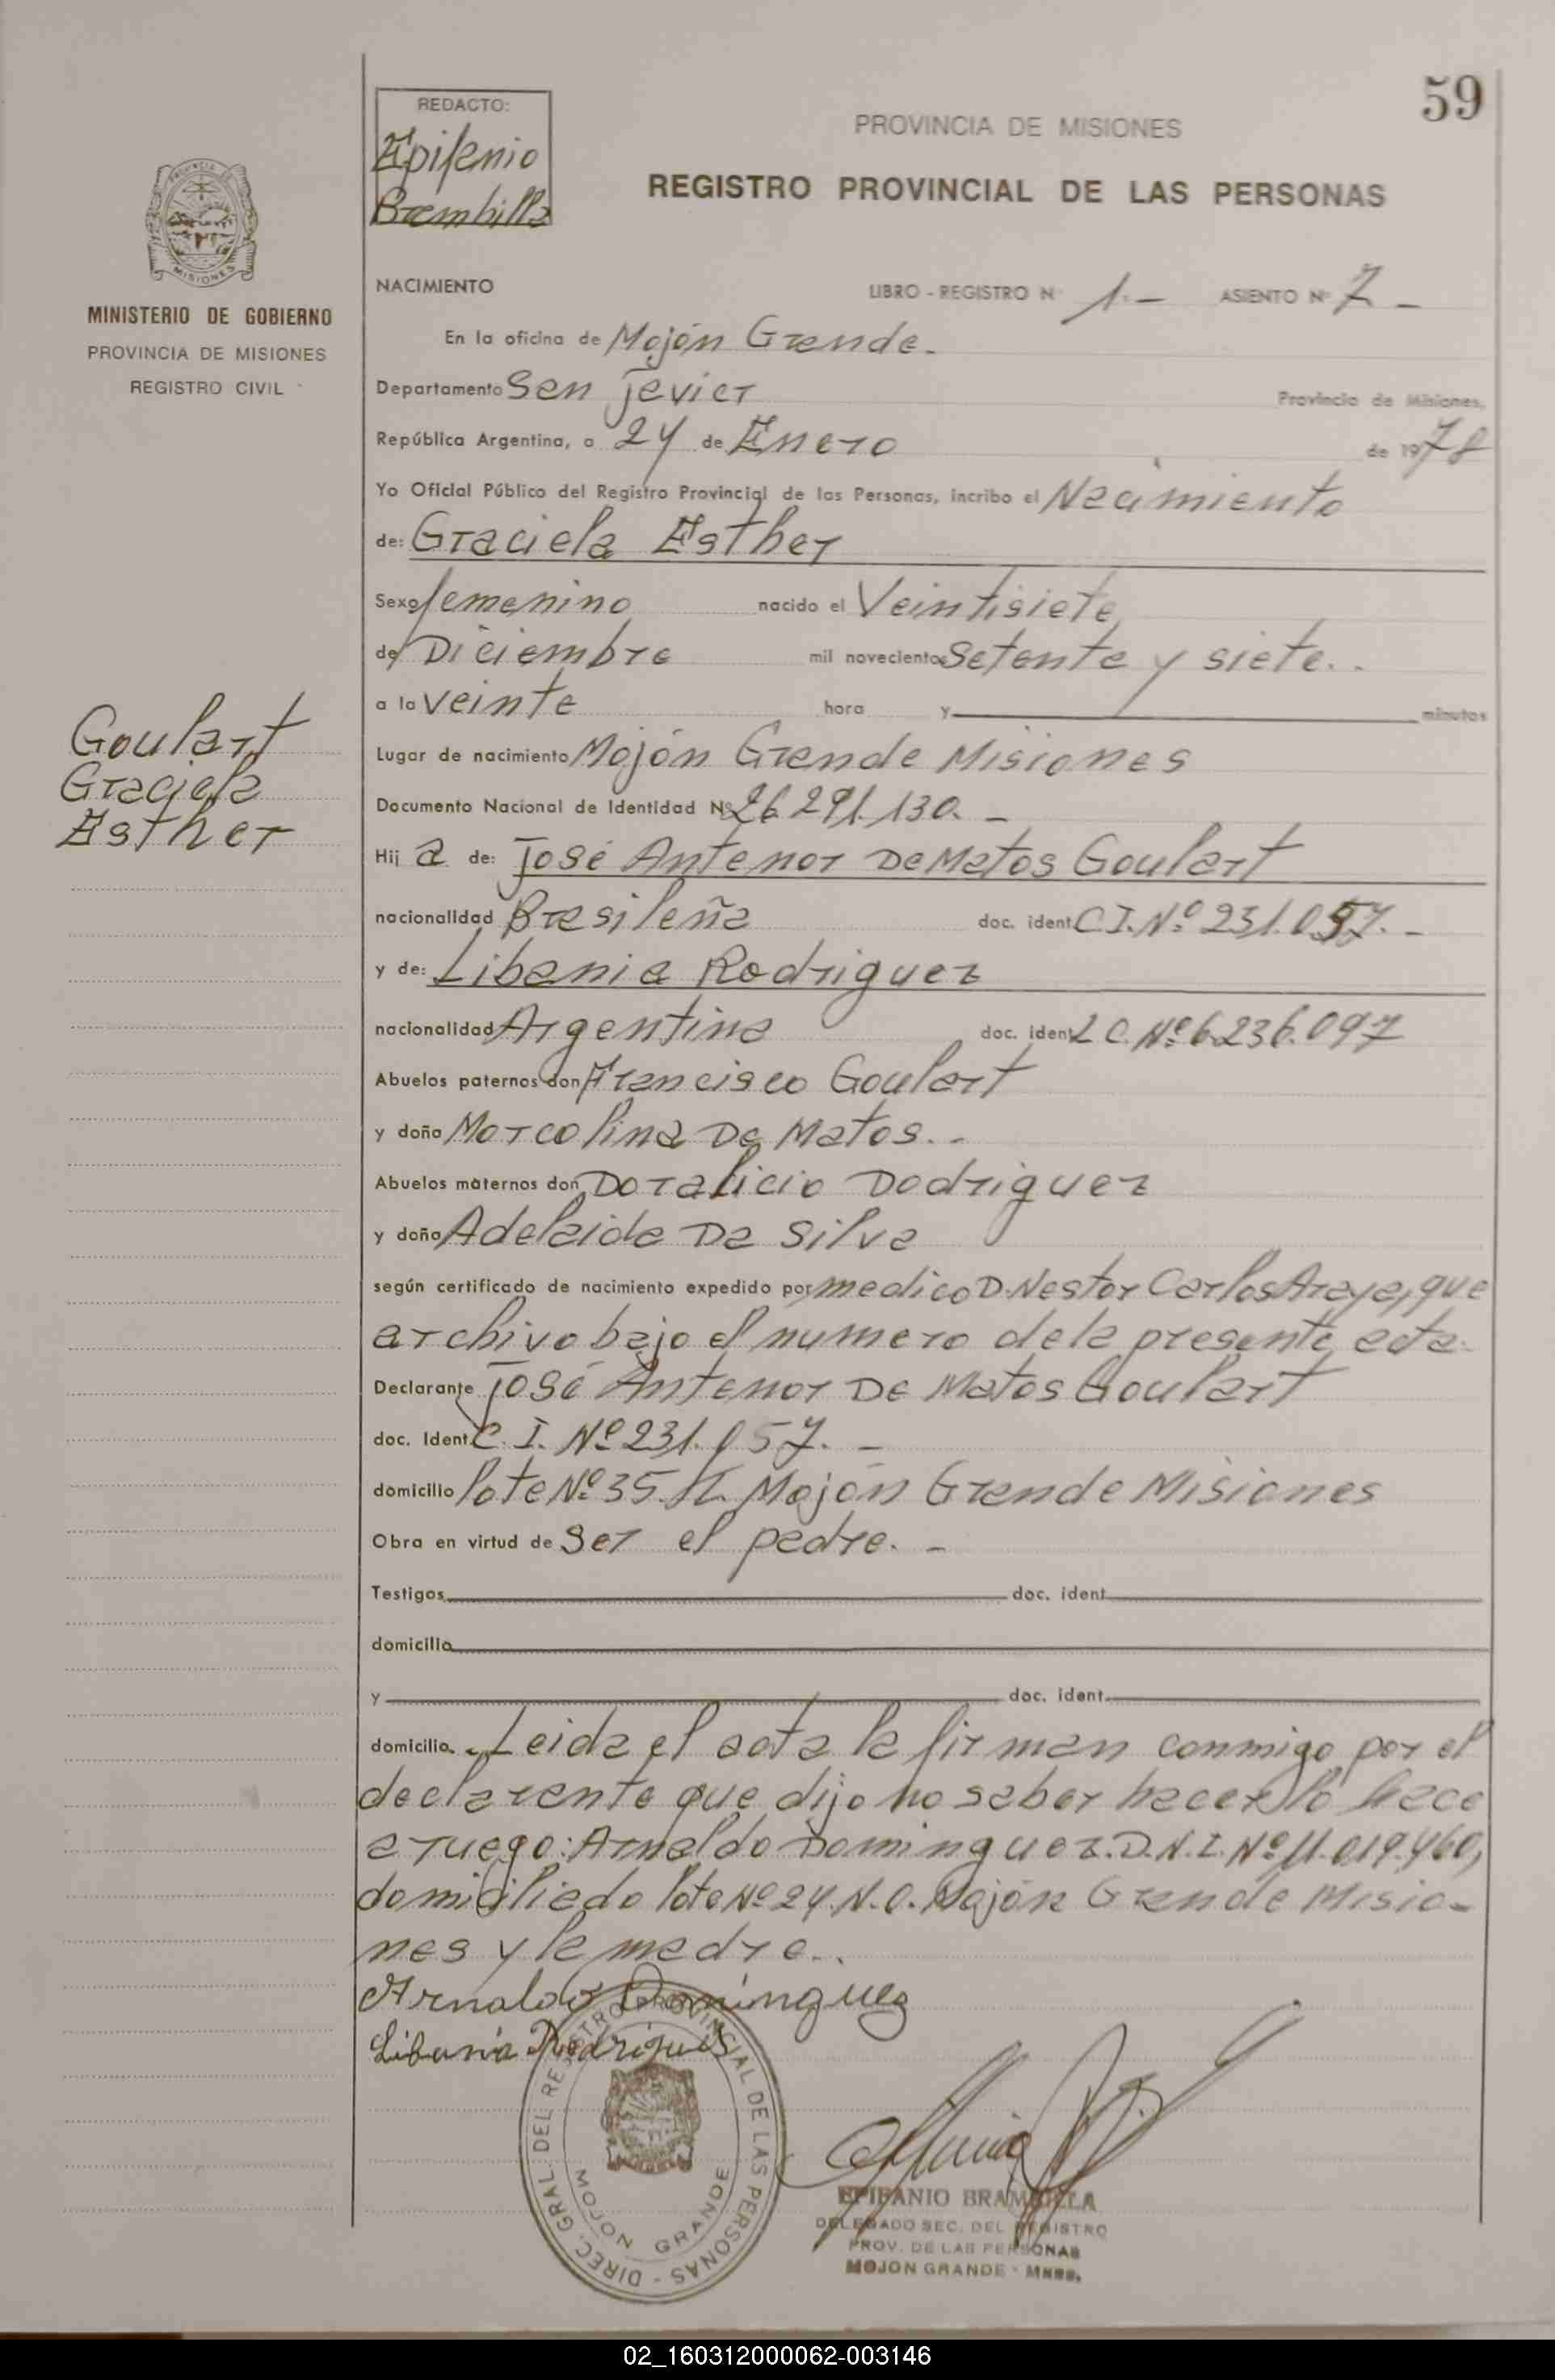 59
REDACTO:
Epifanio
Brambilla
PROVINCIA DE MISIONES
REGISTRO PROVINCIAL DE LAS PERSONAS
MISIONES
MINISTERIO DE GOBIERNO
PROVINCIA DE MISIONES
REGISTRO CIVIL
NACIMIENTO
LIBRO - REGISTRO Nº 1.- ASIENTO Nº 7 -
En la oficina de Mojón Grande.
Departamento San Javier Provincia de Misiones,
República Argentina, a 24 de Enero de 1978
Yo Oficial Público del Registro Provincial de las Personas, incribo el Nacimiento
de: Graciela Esther
Sexo femenino nacido el Veintisiete
de Diciembre mil novecientos Setenta y siete..
a la veinte hora y minutos
Goulart
Graciela
Esther
Lugar de nacimiento Mojón Grande Misiones
Documento Nacional de Identidad Nº 26.291.130. -
Hij a de: José Antenor De Matos Goulart
nacionalidad Brasileña doc. ident. C.I. Nº 231.057. -
y de: Libania Rodriguez
nacionalidad Argentina doc. ident. L C. Nº 6.236.097
Abuelos paternos don Francisco Goulart
y doña Marcolina De Matos..
Abuelos maternos don Doralicio Dodriguez
y doña Adelaida Da Silva
según certificado de nacimiento expedido por medico D. Nestor Carlos Araya, que
archivo bajo el numero de la presente acta.
Declarante José Antenor De Matos Goulart
doc. Ident. C. I. Nº 231.057. -
domicilio lote Nº 35. Mojón Grande Misiones
Obra en virtud de Ser el padre. -
Testigos doc. ident.
domicilio
y doc. ident.
domicilio. Leida el acta la firman conmigo por el
declarante que dijo no saber hacerlo lo hace
a ruego: Arnaldo Dominguez. D.N.I. Nº 11.019.460,
domiciliado lote Nº 24. N.O. Mojón Grande Misio-
nes y la madre..
Arnaldo Dominguez
Libania Rodrigues
DIREC. GRAL. DEL REGISTRO PROVINCIAL DE LAS PERSONAS -
MOJON GRANDE
EPIFANIO BRAMBILLA
DELEGADO SEC. DEL REGISTRO
PROV. DE LAS PERSONAS
MOJON GRANDE - Mnes.
02_160312000062-003146